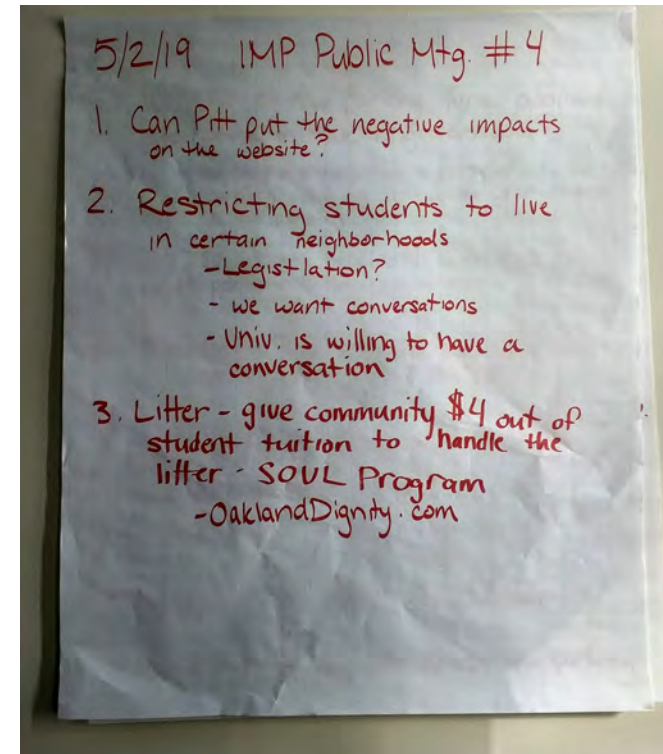 5/2/19 IMP Public Mtg. #4
1. Can Pitt put the negative impacts
on the website?
2. Restricting students to live
in certain neighborhoods
- Legistlation?
- we want conversations
- Univ. is willing to have a
conversation
3. Litter - give community $4 out of
student tuition to handle the
litter - SOUL Program
- OaklandDignity.com